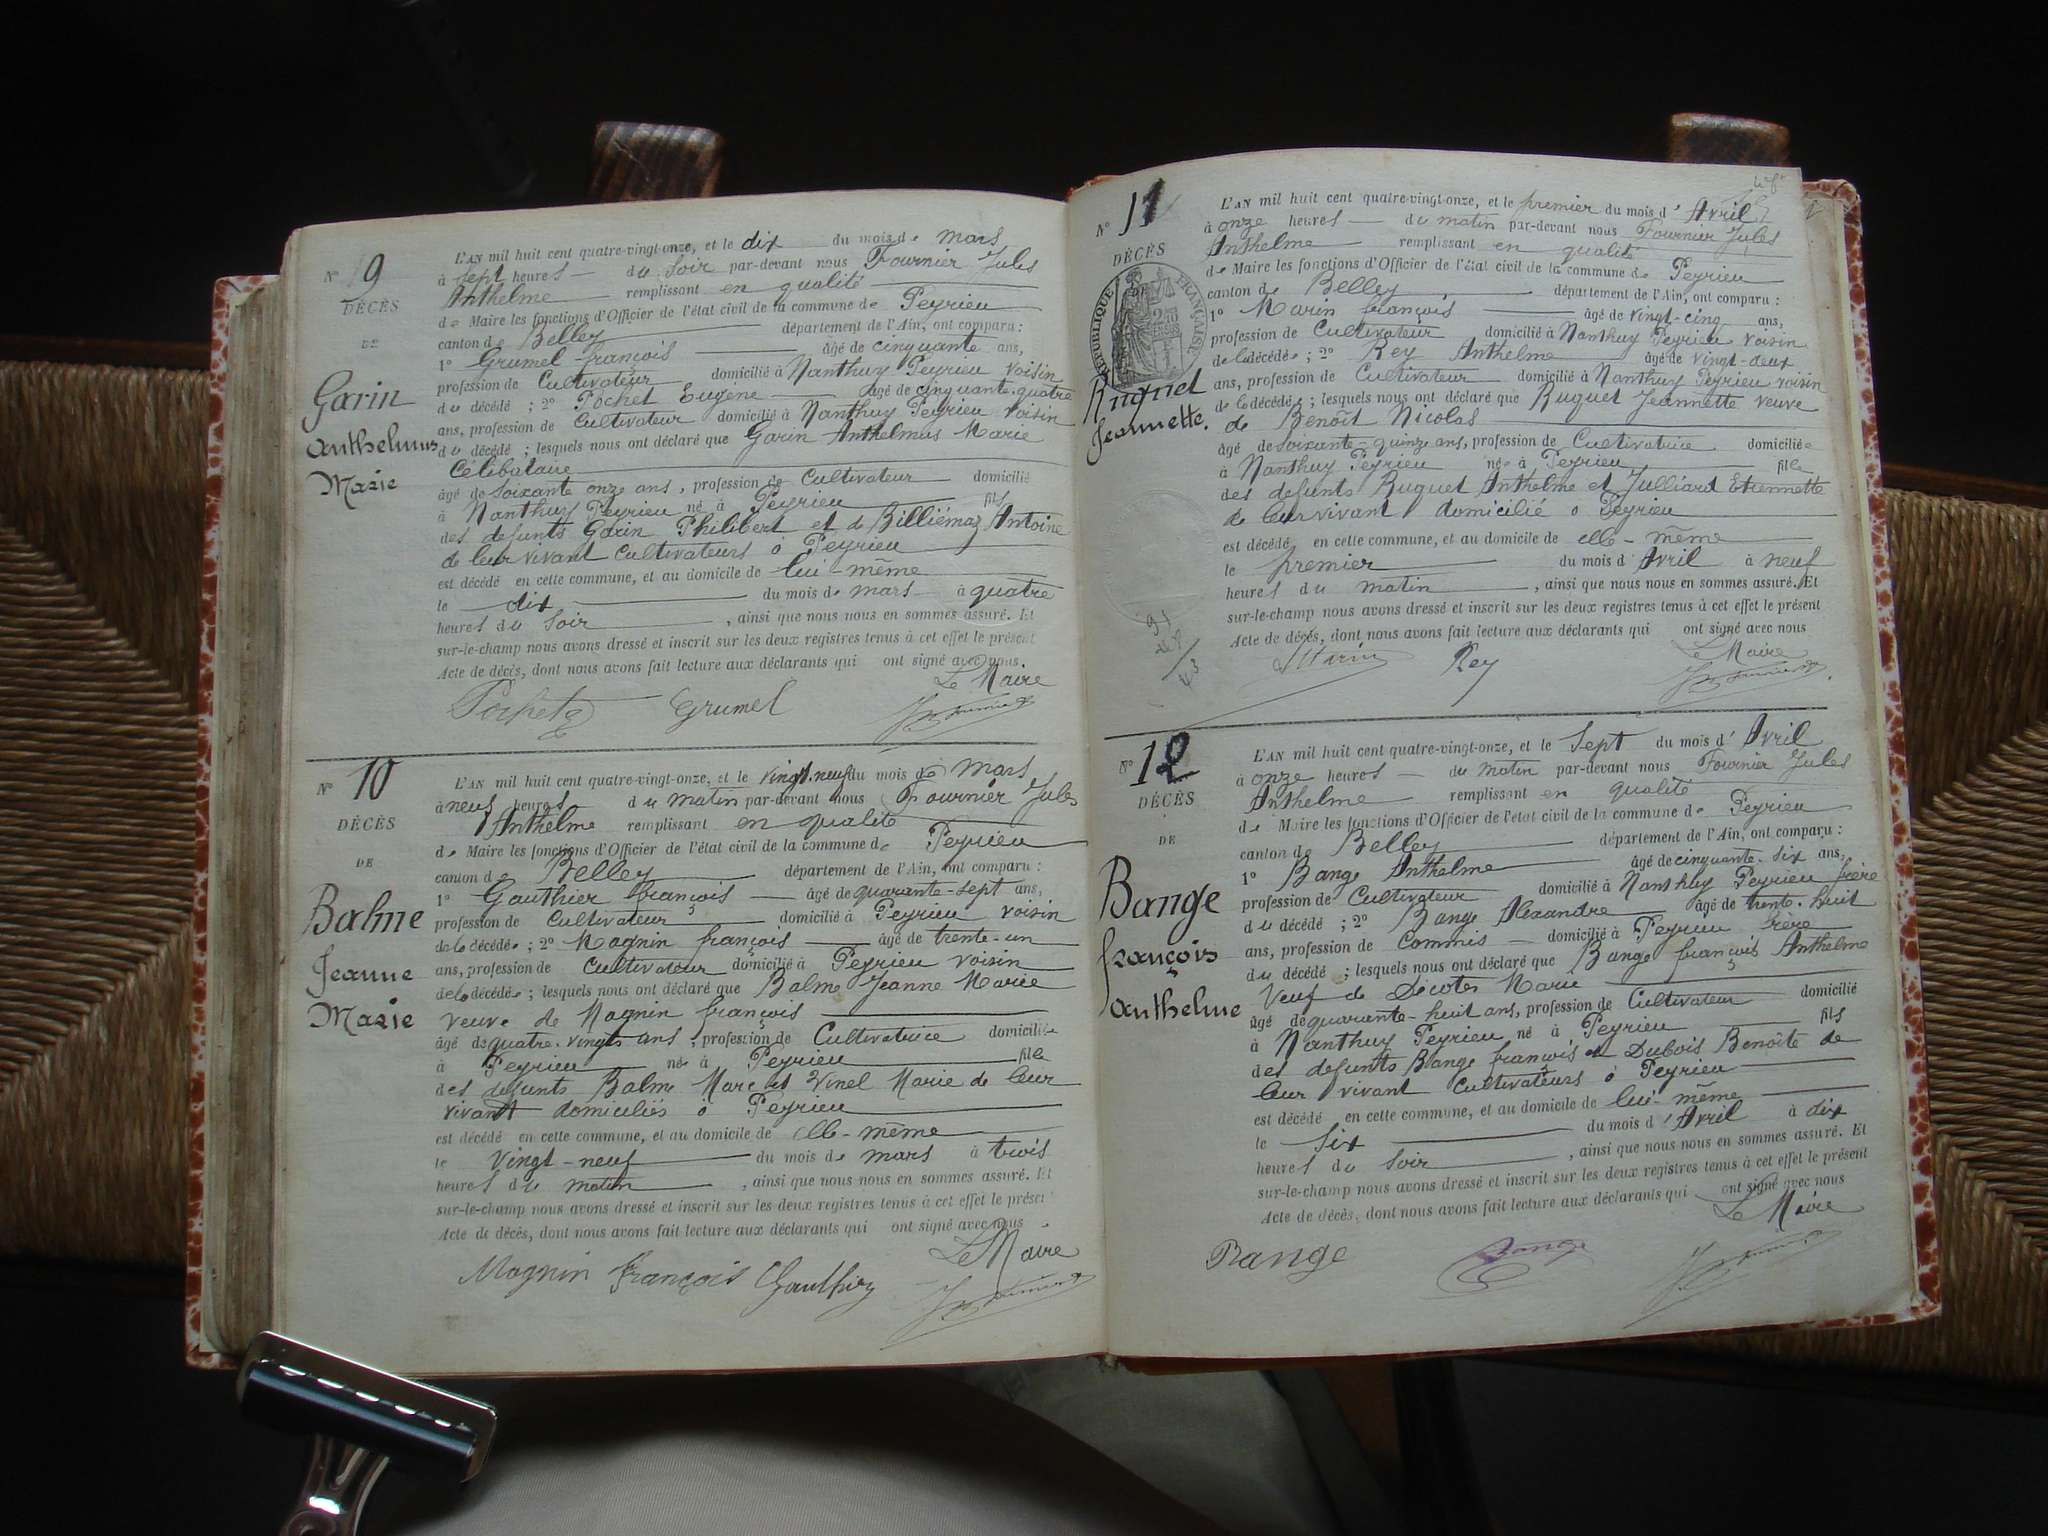 N° 9
DÉCÈS
DE
Garin
Anthelmus
Marie
L'AN mil huit cent quatre-vingt-onze, et le dix du mois de mars
à sept heures du soir par-devant nous Fournier Jules
Anthelme remplissant en qualité
de Maire les fonctions d'Officier de l'état civil de la commune de Peyrieu
canton de Belley département de l'Ain, ont comparu :
1° Grumel françois âgé de cinquante ans,
profession de Cultivateur domicilié à Nanthuy Peyrieu voisin
du décédé ; 2° Pochet Eugène âgé de cinquante-quatre
ans, profession de Cultivateur domicilié à Nanthuy Peyrieu voisin
du décédé ; lesquels nous ont déclaré que Garin Anthelmus Marie
Célibataire
âgé de soixante onze ans, profession de Cultivateur domicilié
à Nanthuy Peyrieu né à Peyrieu fils
des defunts Garin Philibert et de Billiémaz Antoine
de leur vivant cultivateurs à Peyrieu
est décédé en cette commune, et au domicile de lui-même
le dix du mois de mars à quatre
heures du soir, ainsi que nous nous en sommes assuré. Et
sur-le-champ nous avons dressé et inscrit sur les deux registres tenus à cet effet le présent
Acte de décès, dont nous avons fait lecture aux déclarants qui ont signé avec nous
Le Maire
Pochet Grumel
N° 10
DÉCÈS
DE
Balme
Jeanne
Marie
L'AN mil huit cent quatre-vingt-onze, et le vingt-neuf du mois de mars
à neuf heures du matin par-devant nous Fournier Jules
Anthelme remplissant en qualité
de Maire les fonctions d'Officier de l'état civil de la commune de Peyrieu
canton de Belley département de l'Ain, ont comparu :
1° Gauthier françois âgé de quarante-sept ans,
profession de Cultivateur domicilié à Peyrieu voisin
de la décédée ; 2° Magnin françois âgé de trente-un
ans, profession de Cultivateur domicilié à Peyrieu voisin
de la décédée ; lesquels nous ont déclaré que Balme Jeanne Marie
veuve de Magnin françois
âgé de quatre-vingts ans, profession de Cultivatrice domiciliée
à Peyrieu née à Peyrieu fille
des defunts Balme Marc et Vinel Marie de leur
vivant domiciliés à Peyrieu
est décédé en cette commune, et au domicile de elle-même
le vingt-neuf du mois de mars à trois
heures du matin, ainsi que nous nous en sommes assuré. Et
sur-le-champ nous avons dressé et inscrit sur les deux registres tenus à cet effet le présent
Acte de décès, dont nous avons fait lecture aux déclarants qui ont signé avec nous
Le Maire
Magnin françois Gauthier
N° 11
DÉCÈS
RÉPUBLIQUE FRANÇAISE
Ruguet
Jeannette.
L'AN mil huit cent quatre-vingt-onze, et le premier du mois d'Avril
à onze heures du matin par-devant nous Fournier Jules
Anthelme remplissant en qualité
de Maire les fonctions d'Officier de l'état civil de la commune de Peyrieu
canton de Belley département de l'Ain, ont comparu :
1° Marin françois âgé de vingt-cinq ans,
profession de Cultivateur domicilié à Nanthuy Peyrieu voisin
de la décédée ; 2° Rey Anthelme âgé de vingt-deux
ans, profession de Cultivateur domicilié à Nanthuy Peyrieu voisin
de la décédée ; lesquels nous ont déclaré que Ruguet Jeannette veuve
de Benoît Nicolas
âgé de soixante-quinze ans, profession de Cultivatrice domiciliée
à Nanthuy Peyrieu née à Peyrieu fille
des defunts Ruguet Anthelme et Julliard Etiennette
de leur vivant domicilié à Peyrieu
est décédé en cette commune, et au domicile de elle-même
le premier du mois d'Avril à neuf
heures du matin, ainsi que nous nous en sommes assuré. Et
sur-le-champ nous avons dressé et inscrit sur les deux registres tenus à cet effet le présent
Acte de décès, dont nous avons fait lecture aux déclarants qui ont signé avec nous
Le Maire
Marin Rey
N° 12
DÉCÈS
DE
Bange
françois
Anthelme
L'AN mil huit cent quatre-vingt-onze, et le sept du mois d'Avril
à onze heures du matin par-devant nous Fournier Jules
Anthelme remplissant en qualité
de Maire les fonctions d'Officier de l'état civil de la commune de Peyrieu
canton de Belley département de l'Ain, ont comparu :
1° Bange Anthelme âgé de cinquante-six ans,
profession de Cultivateur domicilié à Nanthuy Peyrieu frère
du décédé ; 2° Bange Alexandre âgé de trente-huit
ans, profession de Commis domicilié à Peyrieu frère
du décédé ; lesquels nous ont déclaré que Bange françois Anthelme
Veuf de Décotes Marie
âgé de quarante-huit ans, profession de Cultivateur domicilié
à Nanthuy Peyrieu né à Peyrieu fils
des defunts Bange françois et Dubois Benoîte de
leur vivant cultivateurs à Peyrieu
est décédé en cette commune, et au domicile de lui-même
le six du mois d'Avril à dix
heures du soir, ainsi que nous nous en sommes assuré. Et
sur-le-champ nous avons dressé et inscrit sur les deux registres tenus à cet effet le présent
Acte de décès, dont nous avons fait lecture aux déclarants qui ont signé avec nous
Le Maire
Bange Bange